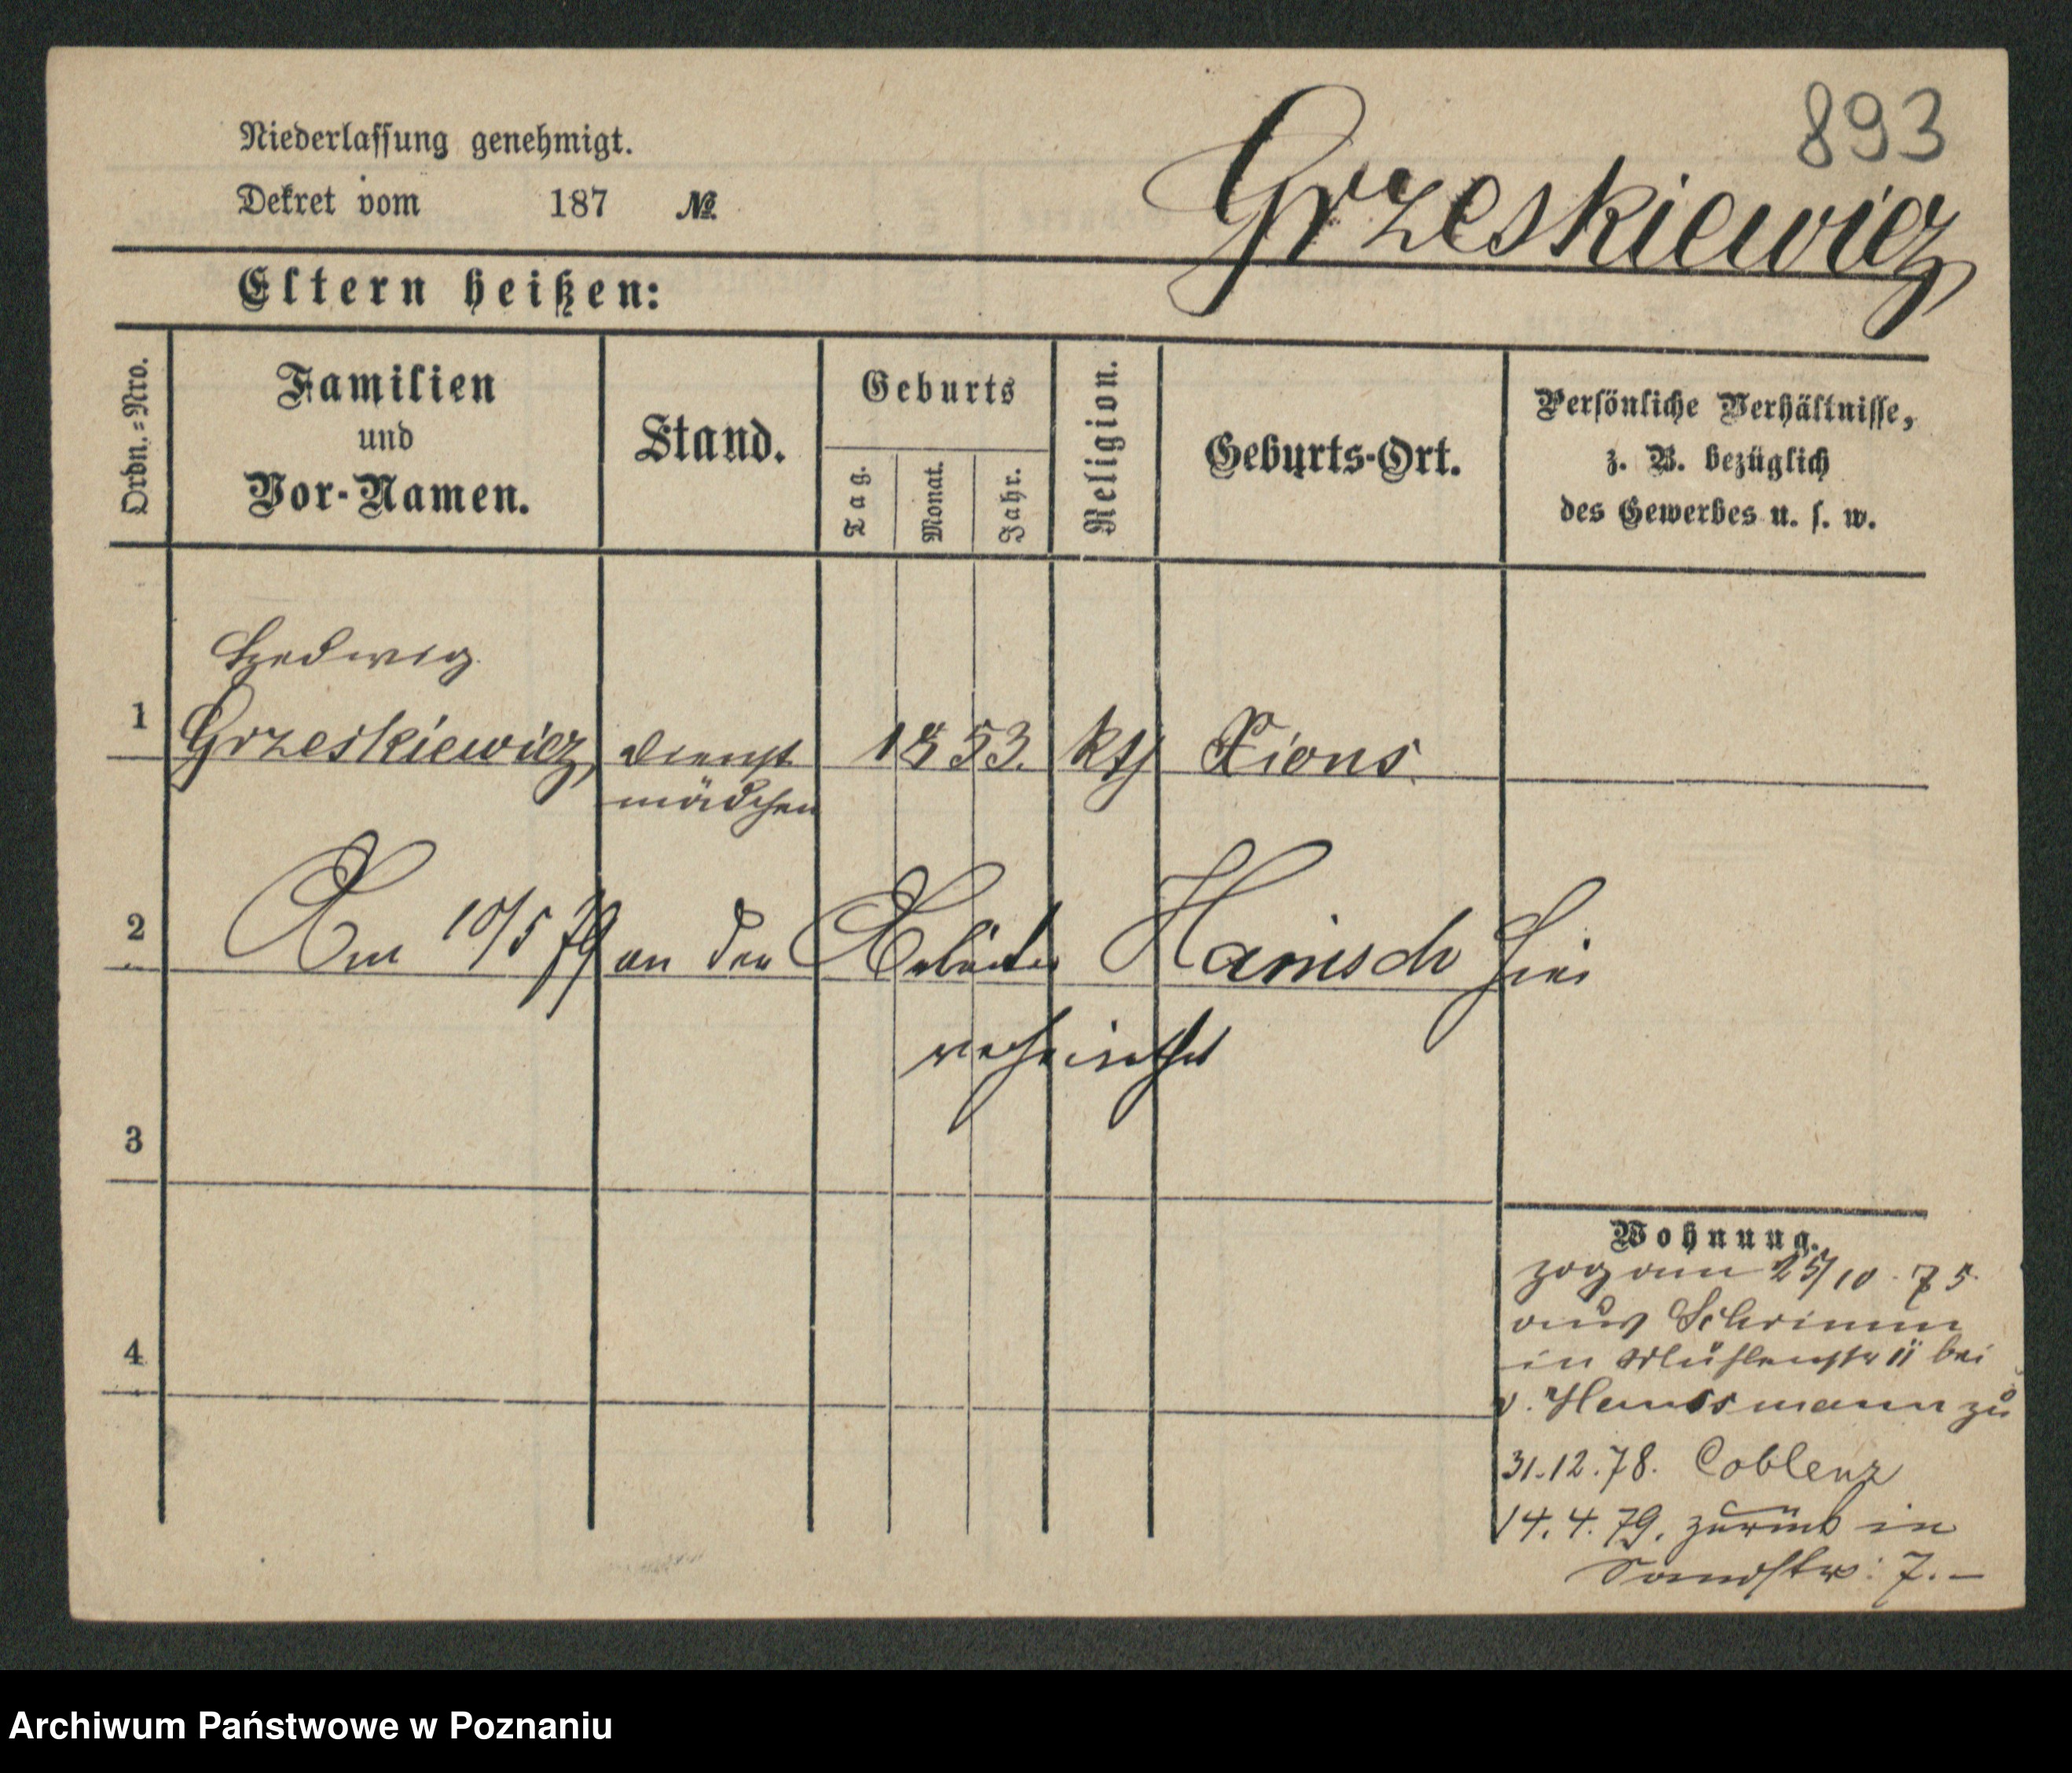 893
Niederlassung genehmigt.
Dekret vom 187 №
Grzeskiewicz
Eltern heißen:
Ordn.=Nro.
Familien
und
Vor-Namen.
Stand.
Geburts
Tag.
Monat.
Jahr.
Religion.
Geburts-Ort.
Persönliche Verhältnisse,
z. B. bezüglich
des Gewerbes u. s. w.
Hedwig
1 Grzeskiewicz, Dienst 1853. kth Xions
mädchen
2 Am 10/5 79 an den Arbeiter Hanisch hier
verheirathet
3
4
Wohnung.
zog am 25/10. 75.
aus Schrimm
in Mühlenstr 11 bei
v. zu
31.12.78. Coblenz
14. 4. 79. zurück in
Sandstr: 7. –
Archiwum Państwowe w Poznaniu